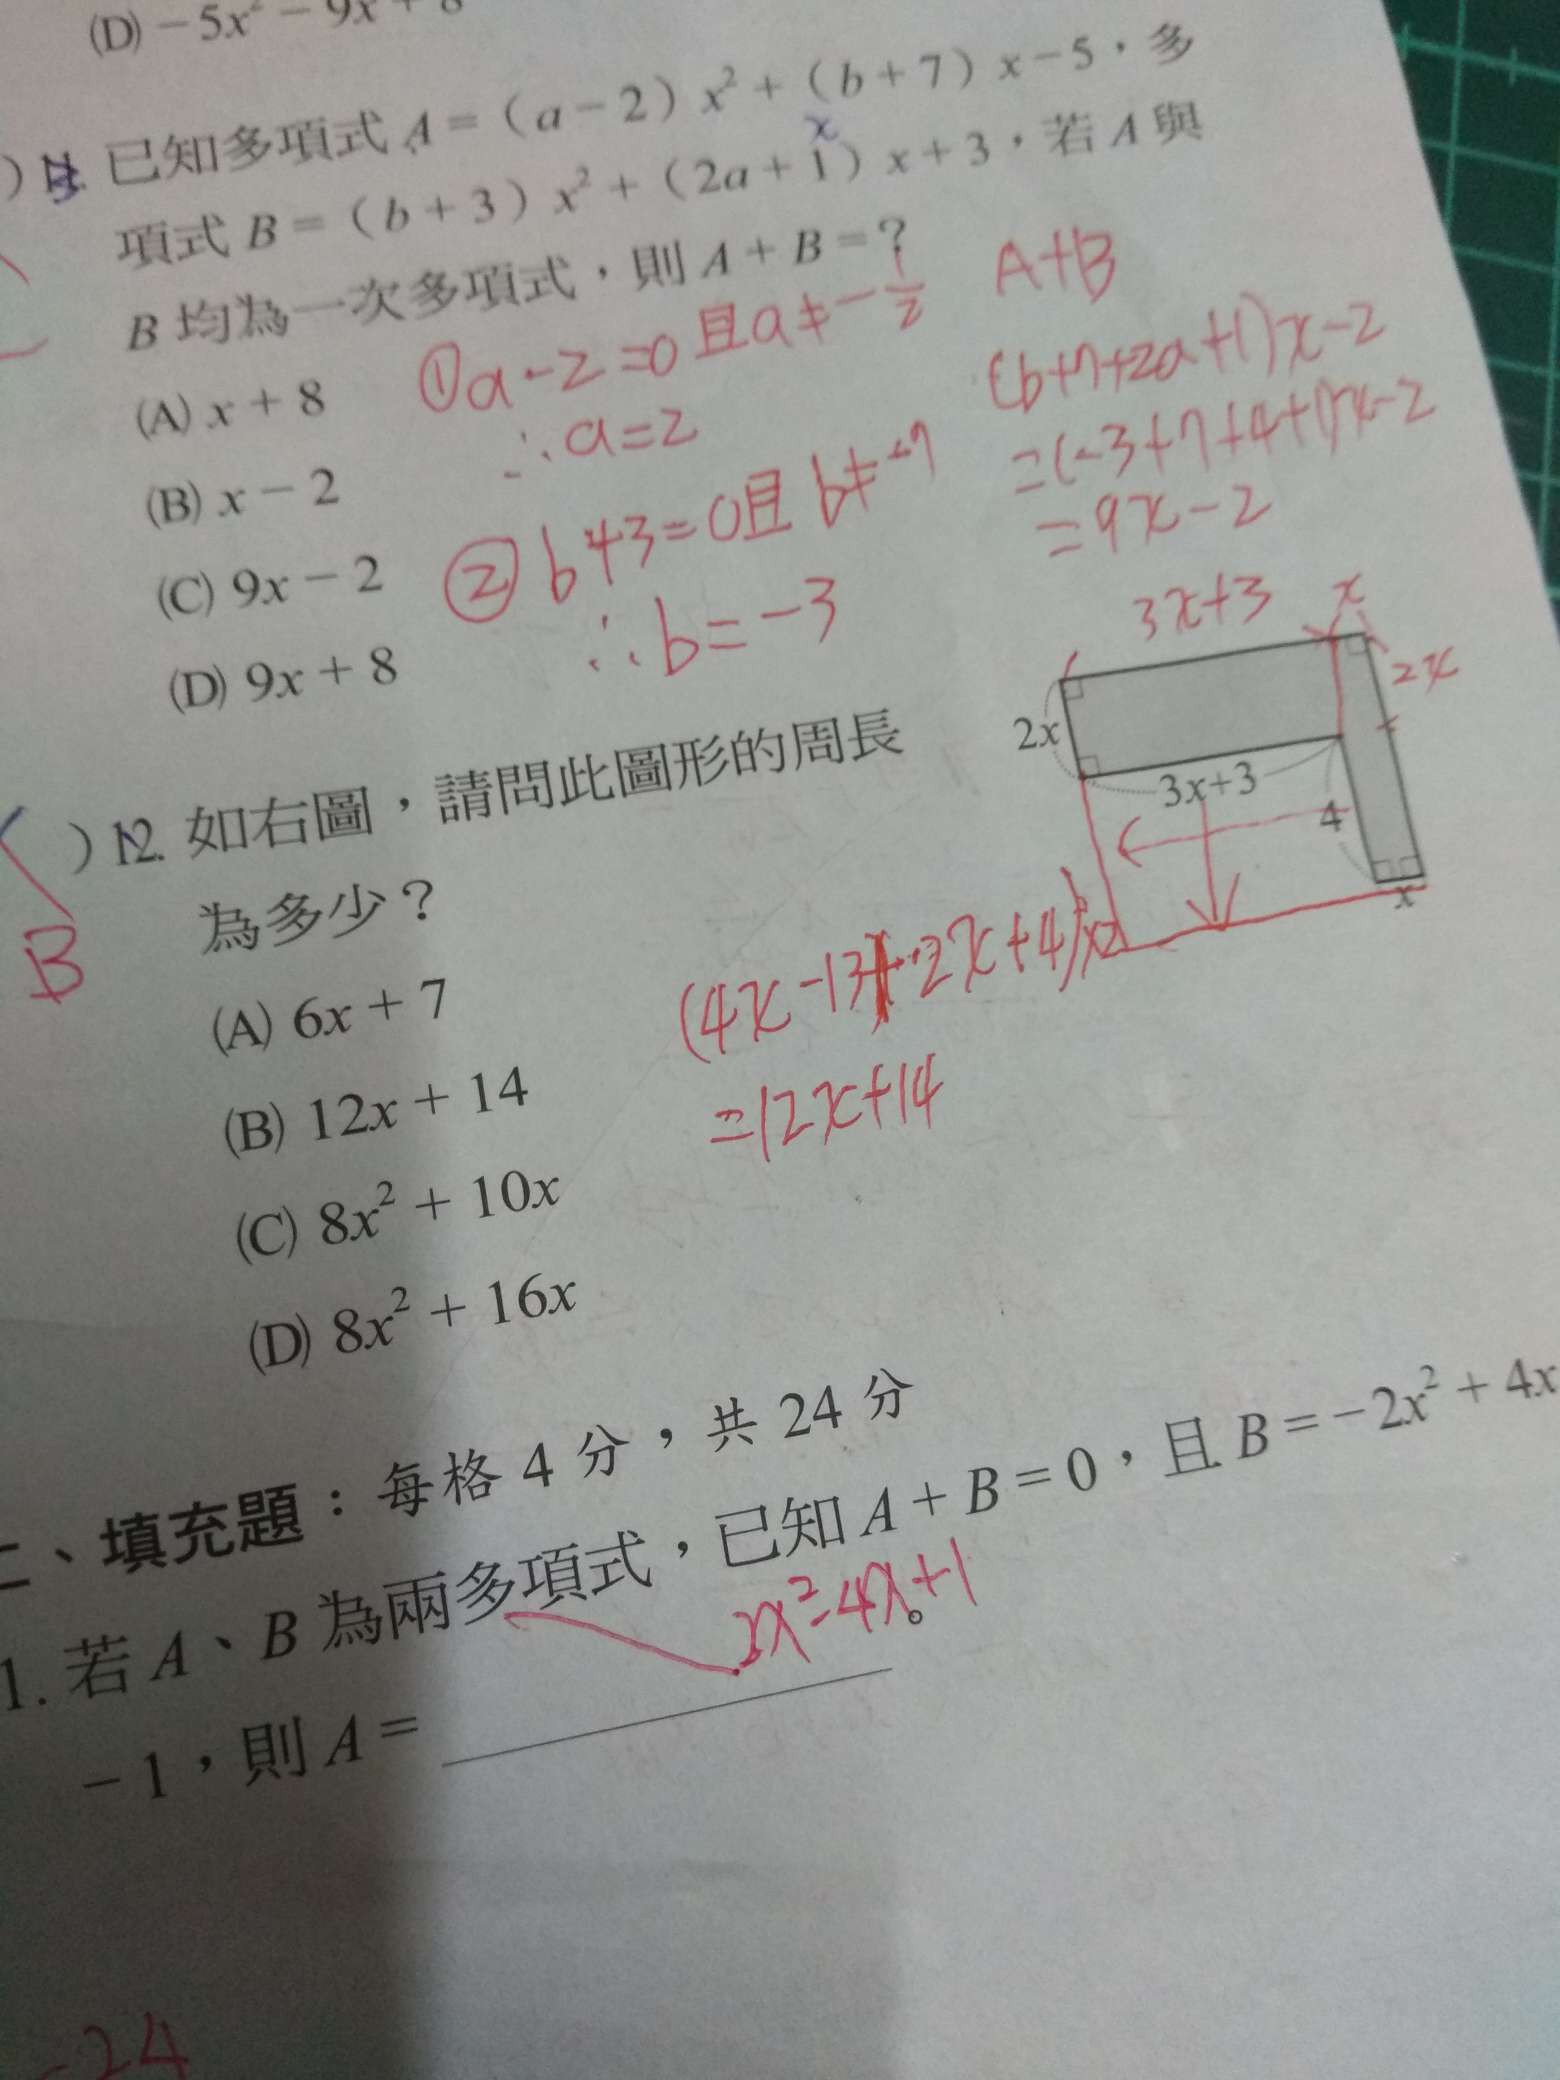 (D) －5x² － 9x + 8
) 11. 已知多項式 A =（a－2）x² +（b+7）x－5，多
x
項式 B =（b+3）x² +（2a+1）x+3，若 A 與
B 均為一次多項式，則 A + B = ?
A+B
①a-2=0且a≠-1/2
(b+7+2a+1)x-2
(A) x + 8
∴a=2
=(-3+7+4+1)x-2
(B) x － 2
②b+3=0且b≠-7
=9x-2
(C) 9x － 2
∴b=-3
(D) 9x + 8
3x+3 x
2x
2x
3x+3
4
x
) 12. 如右圖，請問此圖形的周長
為多少？
B
(4x-13+2x+4)x2
(A) 6x + 7
=12x+14
(B) 12x + 14
(C) 8x² + 10x
(D) 8x² + 16x
二、填充題：每格 4 分，共 24 分
1. 若 A、B 為兩多項式，已知 A + B = 0，且 B = －2x² + 4x
2x²-4x+1
－1，則 A = ________。
-24